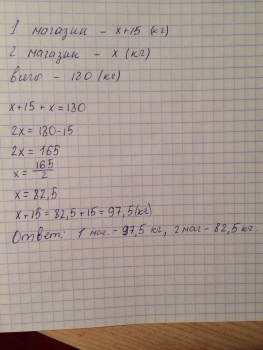 1 магазин – x+15 (кг)
2 магазин – x (кг)
всего – 180 (кг)
x+15+x=180
2x = 180-15
2x = 165
x = 165/2
x = 82,5
x+15 = 82,5+15 = 97,5(кг)
Ответ: 1 маг. – 97,5 кг, 2 маг – 82,5 кг.